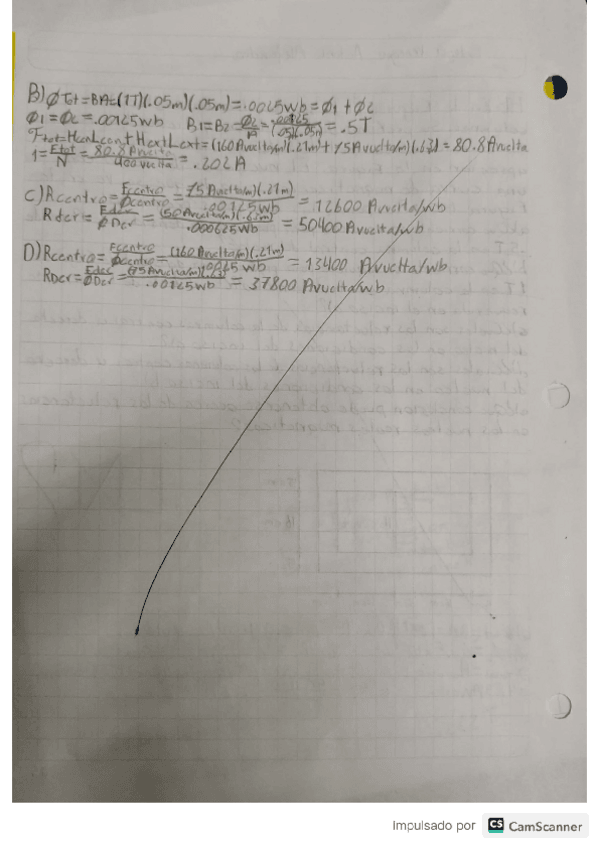 B) Ø Tot = BA = (1T)(.05m)(.05m) = .0025wb = Ø1 + Ø2
Ø1 = Ø2 = .00125wb B1 = B2 = Ø2/A = .00125/(.05)(.05m) = .5T
Ftot = Hcen Lcen + Hext Lext = (160 Avuelta/m)(.21m) + 75 Avuelta/m)(.63) = 80.8 Avuelta
1 = Ftot/N = 80.8 Avuelta/400 vuelta = .202A
C) Rcentro = Fcentro/Øcentro = 75 Avuelta/m)(.21m)/.00125wb = 12600 Avuelta/wb
Rder = Fder/Ø Der = (50 Avuelta/m)(.63m)/.000625wb = 50400 Avuelta/wb
D) Rcentro = Fcentro/Øcentro = (160 Avuelta/m)(.21m)/.0025 wb = 13400 Avuelta/wb
RDer = Fder/ØDer = (75 Avuelta/m)(.63)/.00125wb = 37800 Avuelta/wb
Impulsado por CS CamScanner